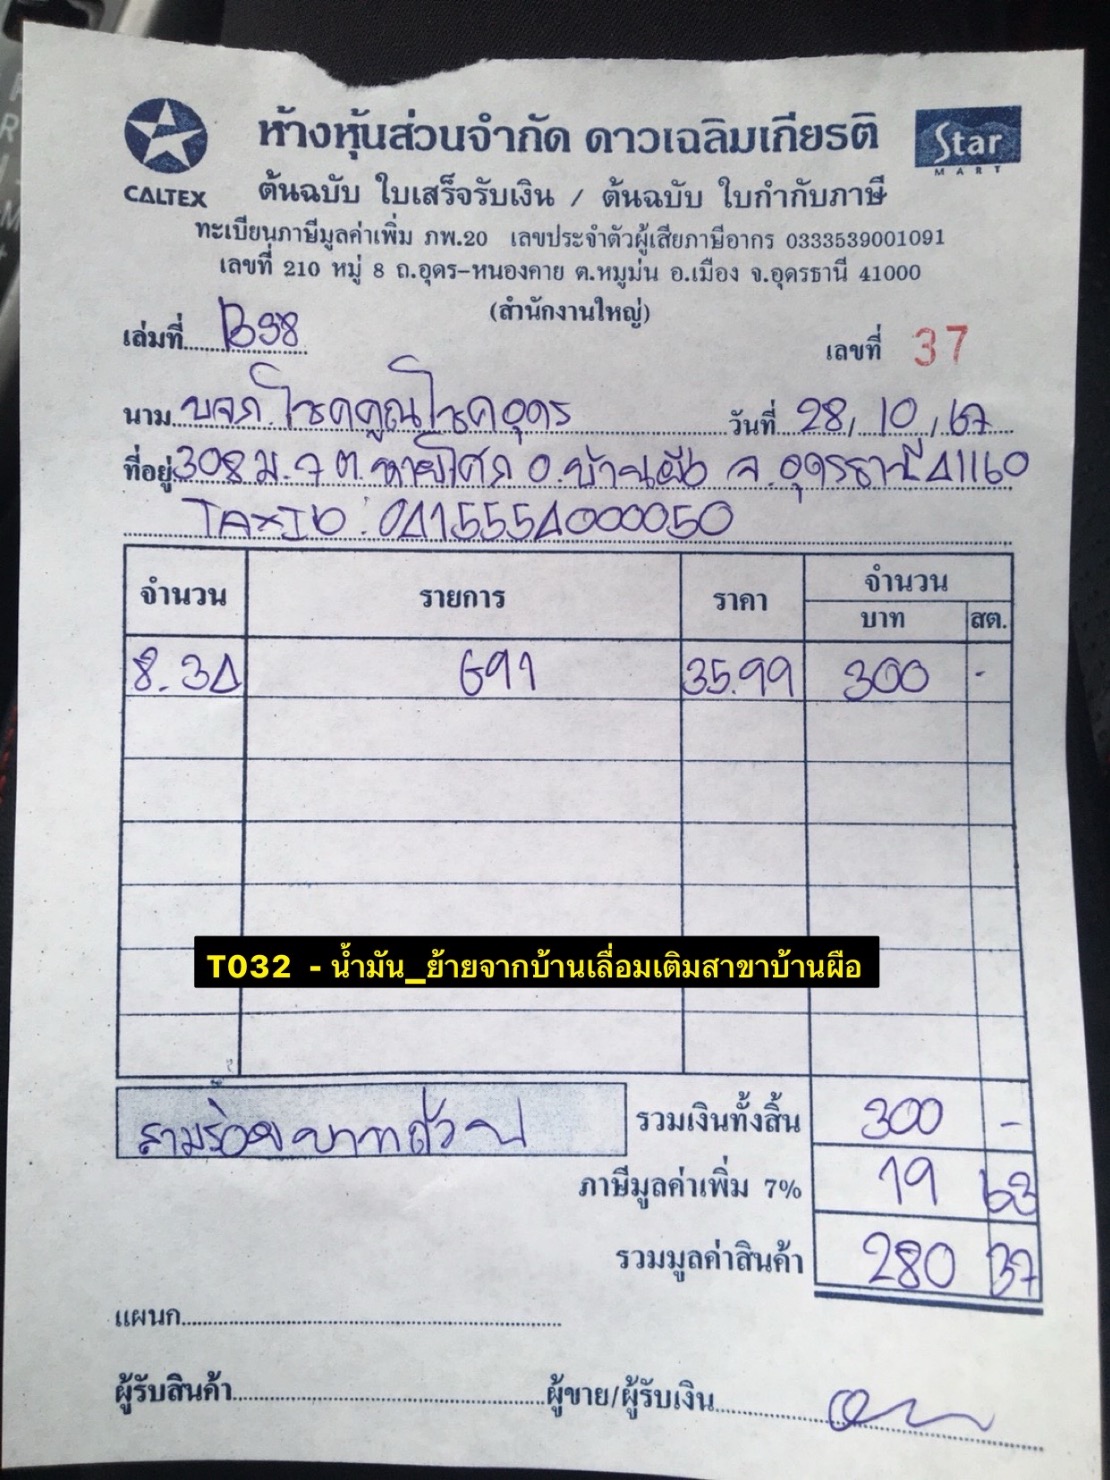 CALTEX
ห้างหุ้นส่วนจำกัด ดาวเฉลิมเกียรติ
Star MART
ต้นฉบับ ใบเสร็จรับเงิน / ต้นฉบับ ใบกำกับภาษี
ทะเบียนภาษีมูลค่าเพิ่ม ภพ.20 เลขประจำตัวผู้เสียภาษีอากร 0333539001091
เลขที่ 210 หมู่ 8 ถ.อุดร-หนองคาย ต.หมูม่น อ.เมือง จ.อุดรธานี 41000
(สำนักงานใหญ่)
เล่มที่ B98 เลขที่ 37
นาม บจก.โชคคูณโชคอุดร วันที่ 28/10/67
ที่อยู่ 308 ม.7 ต.หายโศก อ.บ้านผือ จ.อุดรธานี 41160
TAXID: 0415554000050
จำนวน รายการ ราคา จำนวน
บาท สต.
8.34 G91 35.99 300 -
T032 - น้ำมัน_ย้ายจากบ้านเลื่อมเติมสาขาบ้านผือ
สามร้อยบาทถ้วน รวมเงินทั้งสิ้น 300 -
ภาษีมูลค่าเพิ่ม 7% 19 63
รวมมูลค่าสินค้า 280 37
แผนก
ผู้รับสินค้า ผู้ขาย/ผู้รับเงิน